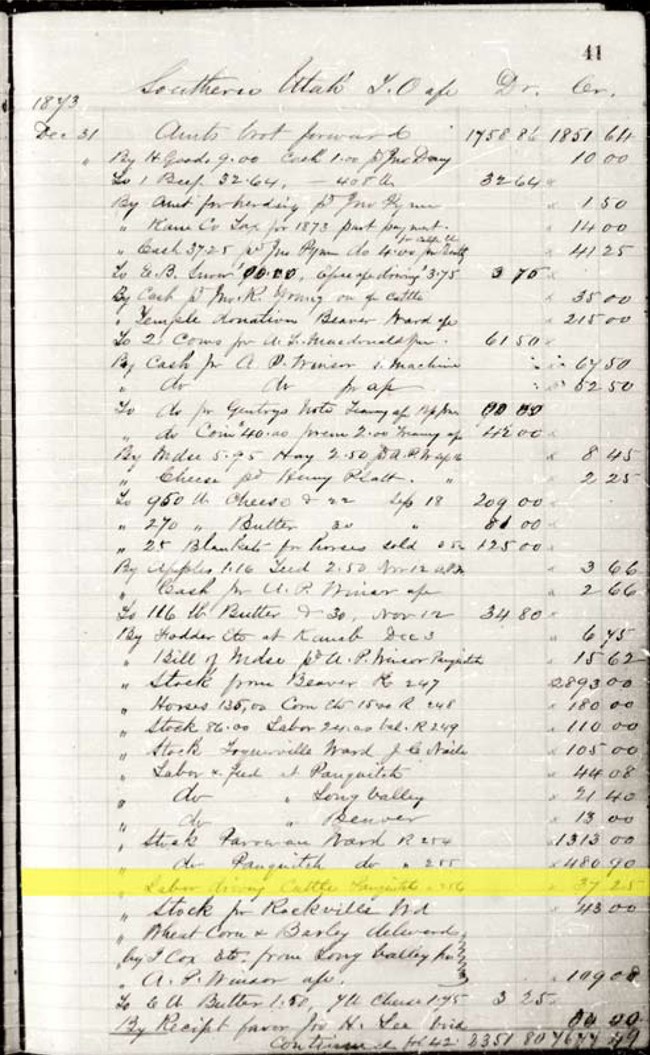 41
Southern Utah T.O a/c Dr. Cr.
1873
Dec 31 Amts brot forward 1758 86 1851 64
" By H Goods 9.00 Cash 1.00 pr Jno Day 10 00
To 1 Beef. 32.64, — 408 lb 32 64
By Amt for herding pr Jno 1 50
" Kane Co Tax for 1873 part payment. 14 00
" Cash 37.25 pr Jno do 4.00 41 25
To E.B. Snow driving 3.75 3 75
By Cash pr Jno. R. Young on cattle 35 00
" Temple donation Beaver Ward 215 00
To 2 Cows for Macdonald 61 50
By Cash pr A. P. Winsor s. Machine 67 50
" do do pr a/c 52 50
To do pr Gentrys Note
" do Coin 40.00 prem 2.00 42 00
By Mdse 5.95 Hay 2.50 8 45
" Cheese pr Henry Platt. " 2 25
To 950 lb Cheese @ 22 Sep 18 209 00
" 270 " Butter 30 " 81 00
" 25 Blankets for horses sold 125 00
By Apples 1.16 Seed 2.50 Nov 12 3 66
" Cash pr A. P. Winsor a/c 2 66
To 116 lb Butter @ 30, Nov 12 34 80
By Fodder Etc at Kanab Dec 3 6 75
" Bill of Mdse pr A. P. Winsor Panguitch 15 62
" Stock from Beaver R 247 2893 00
" Horses 135,00 Corn 15.00 R 248 180 00
" Stock 86.00 Labor 24.00 bal. R 249 110 00
" Stock Toquerville Ward 105 00
" Labor & feed at Panguitch 44 08
" do " Long Valley 21 40
" do " 13 00
" Stock Parowan Ward R 254 1313 00
" do Panguitch do " 255 480 90
" Labor driving Cattle Panguitch " 256 37 25
" Stock pr Rockville Wd 43 00
" Wheat Corn & Barley delivered
" by Cox Etc. from Long Valley
" A. P. Winsor a/c. 109 08
To 6 lb Butter 1.50, 7 lb Cheese 1.75 3 25
By Receipt favor Jno H. Lee
Continued fol 42 2351 80